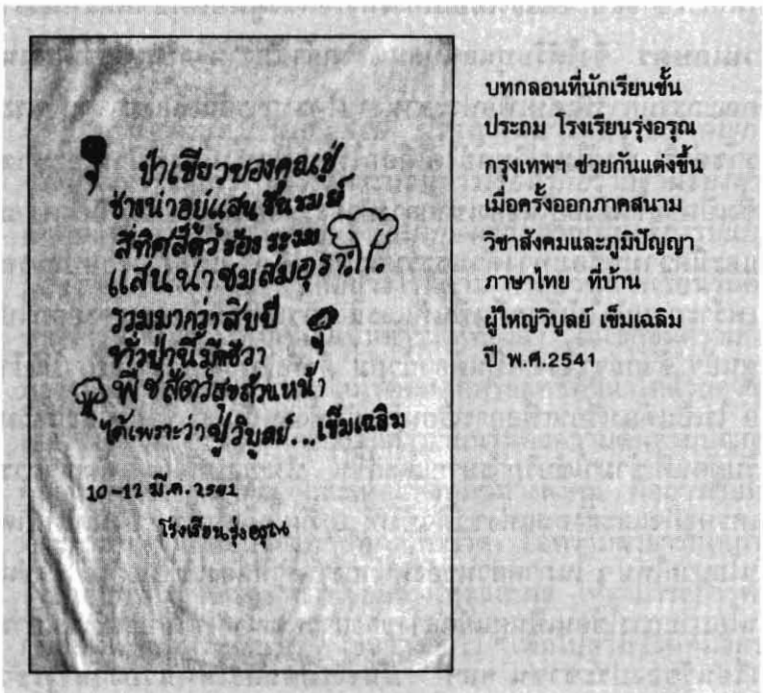 ป่าเขียวของคุณปู่
ช่างน่าอยู่แสนรื่นรมย์
สี่ทิศสัตว์ร้องระงม
แสนน่าชมสมอุรา
รวมมากว่าสิบปี
ทั่วป่านี้มีชีวา
พืชสัตว์สุขถ้วนหน้า
ได้เพราะว่าปู่วิบูลย์...เข็มเฉลิม
10-12 มี.ค. 2541
โรงเรียนรุ่งอรุณ
บทกลอนที่นักเรียนชั้น
ประถม โรงเรียนรุ่งอรุณ
กรุงเทพฯ ช่วยกันแต่งขึ้น
เมื่อครั้งออกภาคสนาม
วิชาสังคมและภูมิปัญญา
ภาษาไทย ที่บ้าน
ผู้ใหญ่วิบูลย์ เข็มเฉลิม
ปี พ.ศ.2541